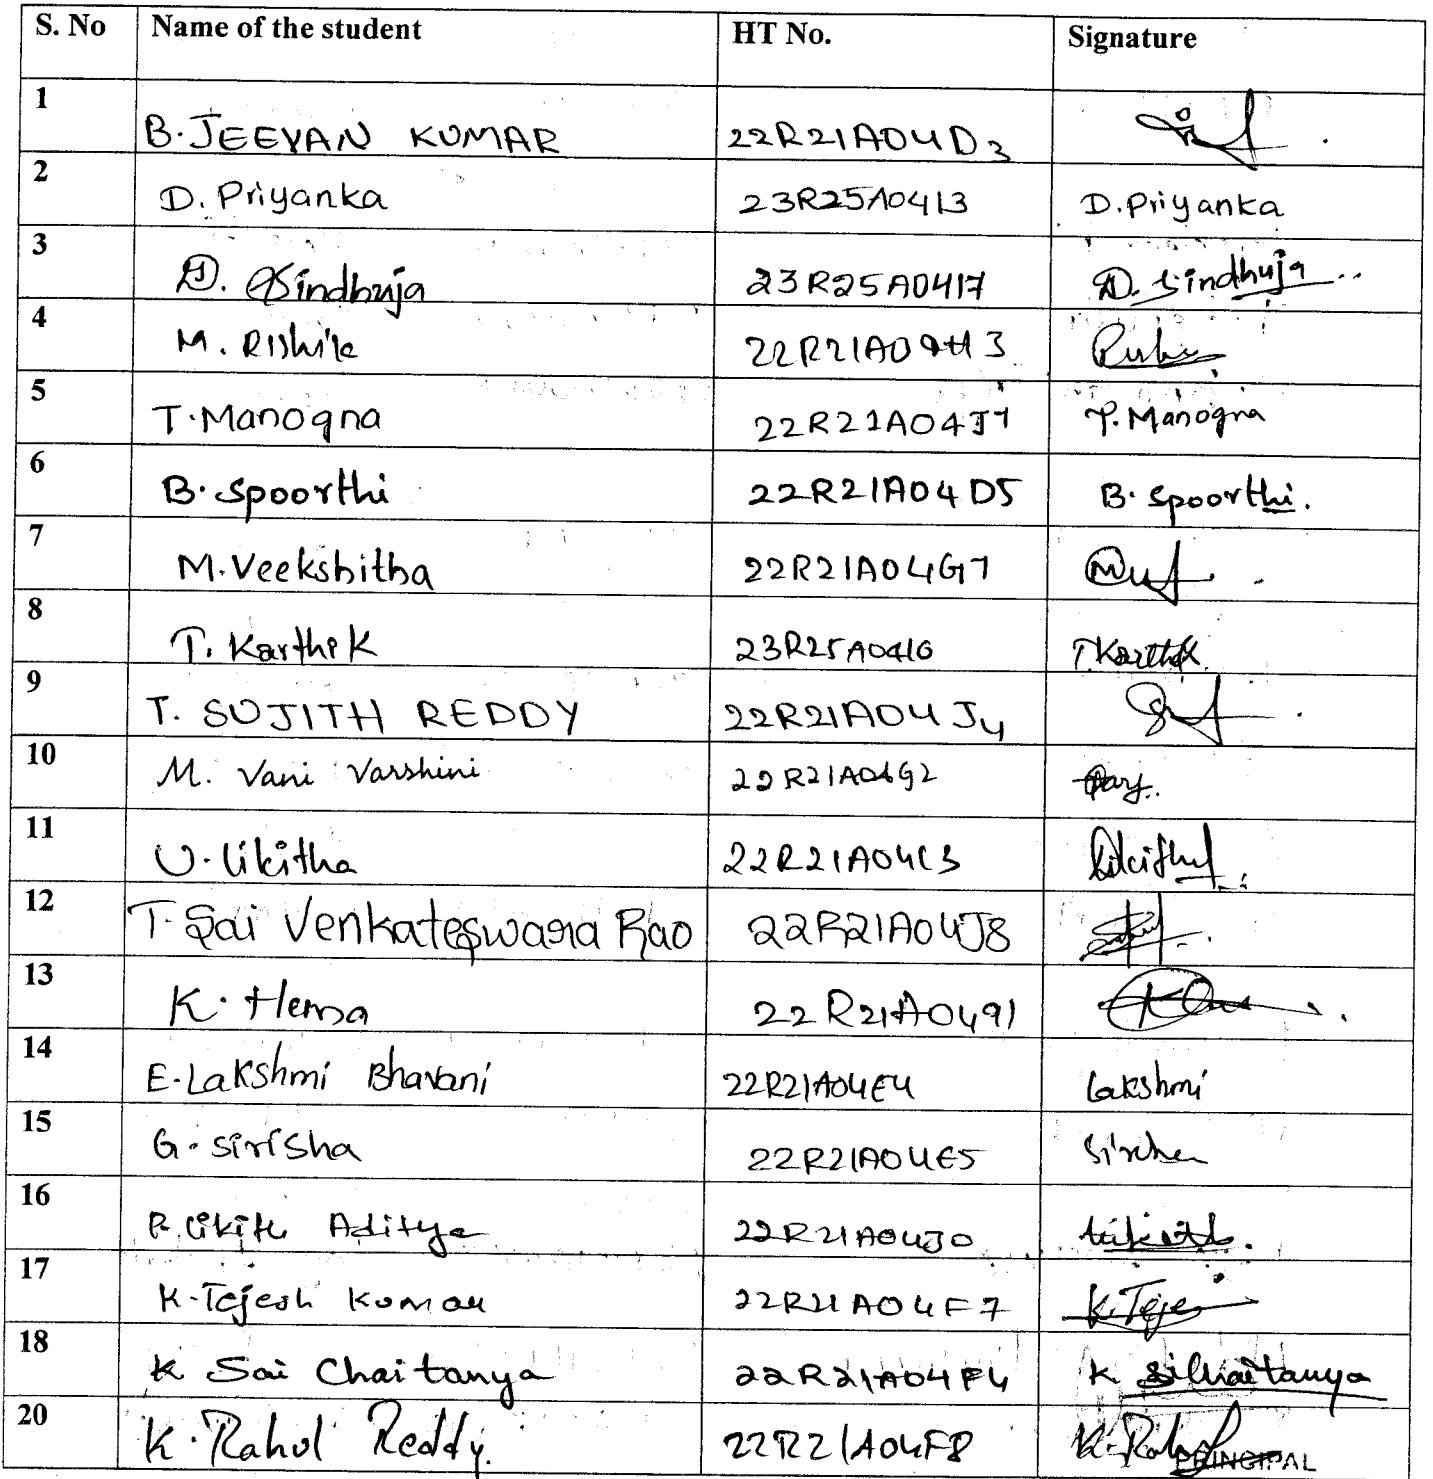 S. No Name of the student HT No. Signature
1 B. JEEVAN KUMAR 22R21A04D3
2 D. Priyanka 23R25A0413 D. Priyanka
3 D. Sindhuja 23R25A0417 D. Sindhuja
4 M. Rishik
5 T. Manogna 22R21A04J7 T. Manogna
6 B. Spoorthi 22R21A04D5 B. Spoorthi.
7 M. Veekshitha 22R21A04G7
8 T. Karthik 23R25A0416 T. Karthik
9 T. SUJITH REDDY 22R21A04J4
10 M. Vani Varshini 22R21A04G2
11 U. likitha
12 T. Sai Venkateswara Rao 22R21A04J8
13 K. Hema 22R21A0491
14 E. Lakshmi Bhavani 22R21A04E4 Lakshmi
15 G. Sirisha 22R21A04E5
16 P. likith Aditya 22R21A04J0 likith.
17 K. Tejesh Kumar 22R21A04F7 K. Teje
18 K Sai Chaitanya 22R21A04F4 K Chaitanya
20 K. Rahul Reddy. 22R21A04F8 K. Rahul
PRINCIPAL